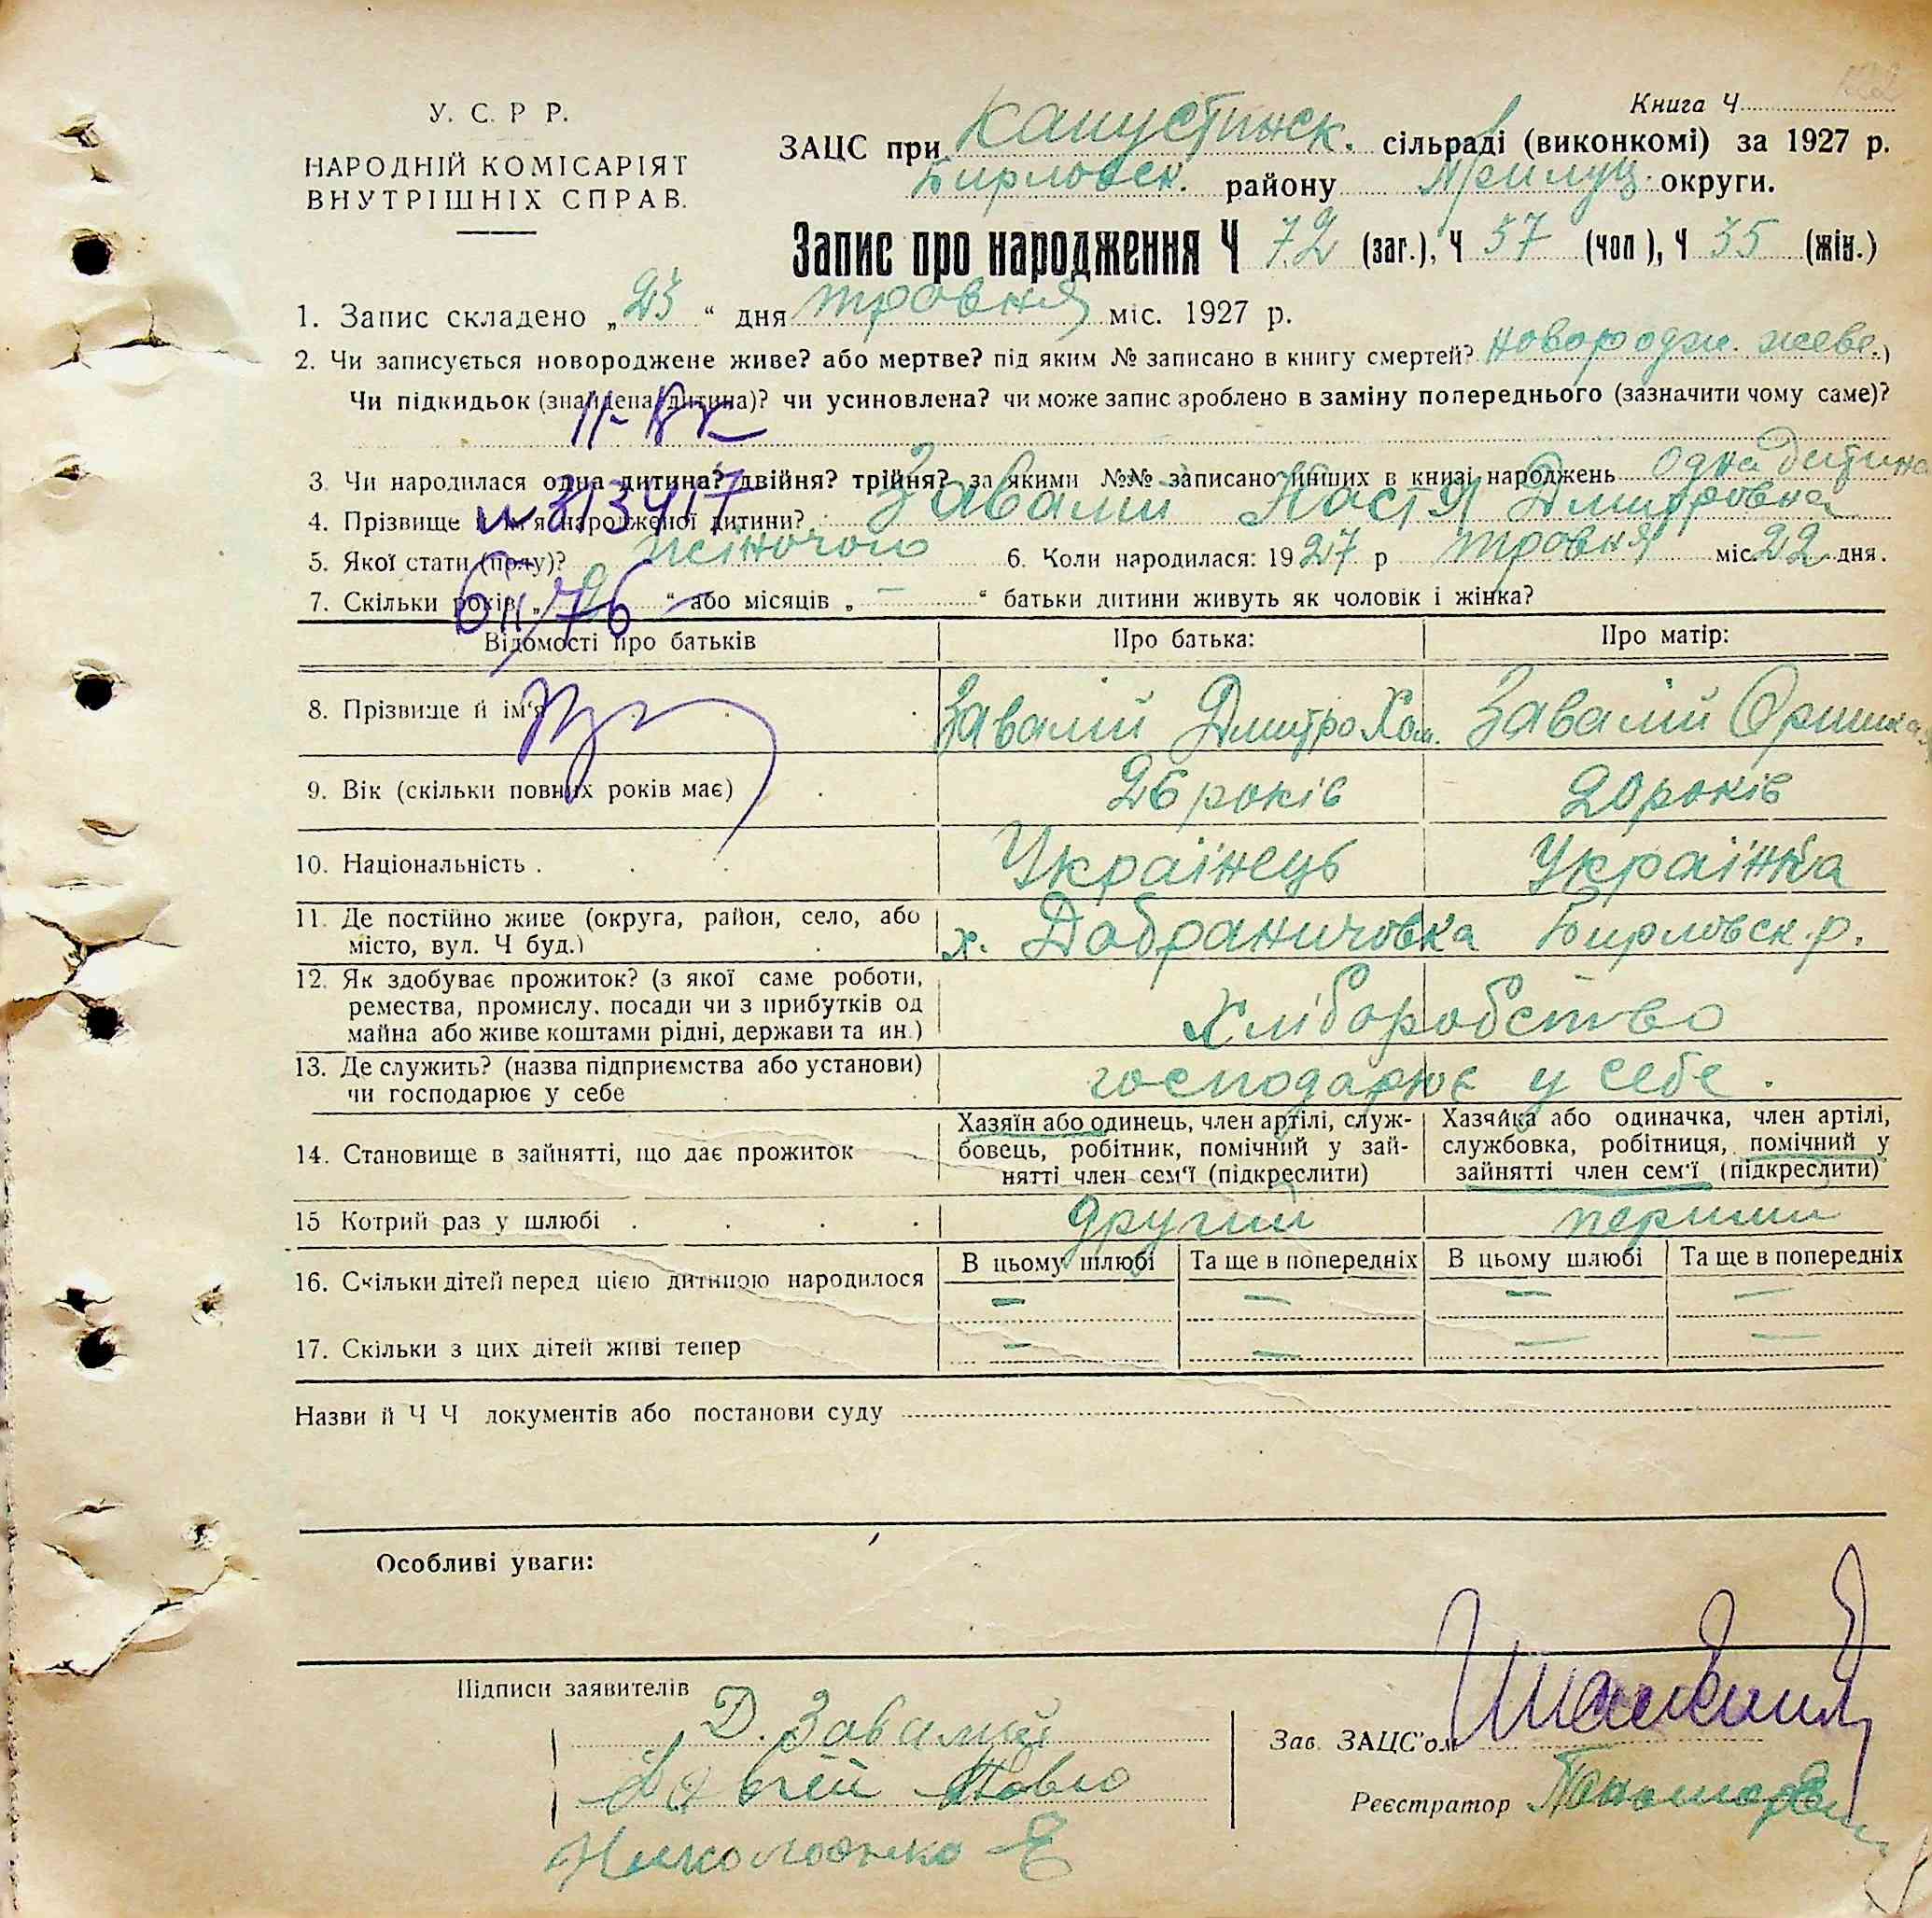 У. С. Р Р.
НАРОДНІЙ КОМІСАРІЯТ
ВНУТРІШНІХ СПРАВ.
Книга Ч
ЗАЦС при Капустинск. сільраді (виконкомі) за 1927 р.
Бирловск. району Прилуц. округи.
Запис про народження Ч 72 (заг.), Ч 37 (чол), Ч 35 (жін.)
1. Запис складено „23“ дня травня міс. 1927 р.
2. Чи записується новороджене живе? або мертве? під яким № записано в книгу смертей? новородж. живе.)
Чи підкидьок (знайдена дитина)? чи усиновлена? чи може запис зроблено в заміну попереднього (зазначити чому саме)?
3. Чи народилася одна дитина? двійня? трійня? за якими №№ записано инших в книзі народжень одна дитина
4. Прізвище й ім'я народженої дитини? Завалій Настя Дмитровна
5. Якої стати (полу)? жіночого 6. Коли народилася: 1927 р травня міс. 22 дня.
7. Скільки років „ “ або місяців „ — “ батьки дитини живуть як чоловік і жінка?
Відомості про батьків Про батька: Про матір:
8. Прізвище й ім'я Завалій Дмитро Хом. Завалій Оришка
9. Вік (скільки повних років має) 26 років 20 років
10. Національність . Українець Українка
11. Де постійно живе (округа, район, село, або
місто, вул. Ч буд.) х. Добраничовка Бирловск. р.
12. Як здобуває прожиток? (з якої саме роботи,
ремества, промислу, посади чи з прибутків од
майна або живе коштами рідні, держави та ин.) Хліборобство
13. Де служить? (назва підприємства або установи)
чи господарює у себе господарює у себе.
14. Становище в зайнятті, що дає прожиток
Хазяїн або одинець, член артілі, служ-
бовець, робітник, помічний у зай-
нятті член сем'ї (підкреслити)
Хазяйка або одиначка, член артілі,
службовка, робітниця, помічний у
зайнятті член сем'ї (підкреслити)
15 Котрий раз у шлюбі другий перший
В цьому шлюбі Та ще в попередніх В цьому шлюбі Та ще в попередніх
16. Скільки дітей перед цією дитиною народилося — — — —
17. Скільки з цих дітей живі тепер — — — —
Назви й Ч Ч документів або постанови суду
Особливі уваги:
Підписи заявителів
Д. Завалий
Павло
Николаенко Е
Зав. ЗАЦС'ом
Реєстратор